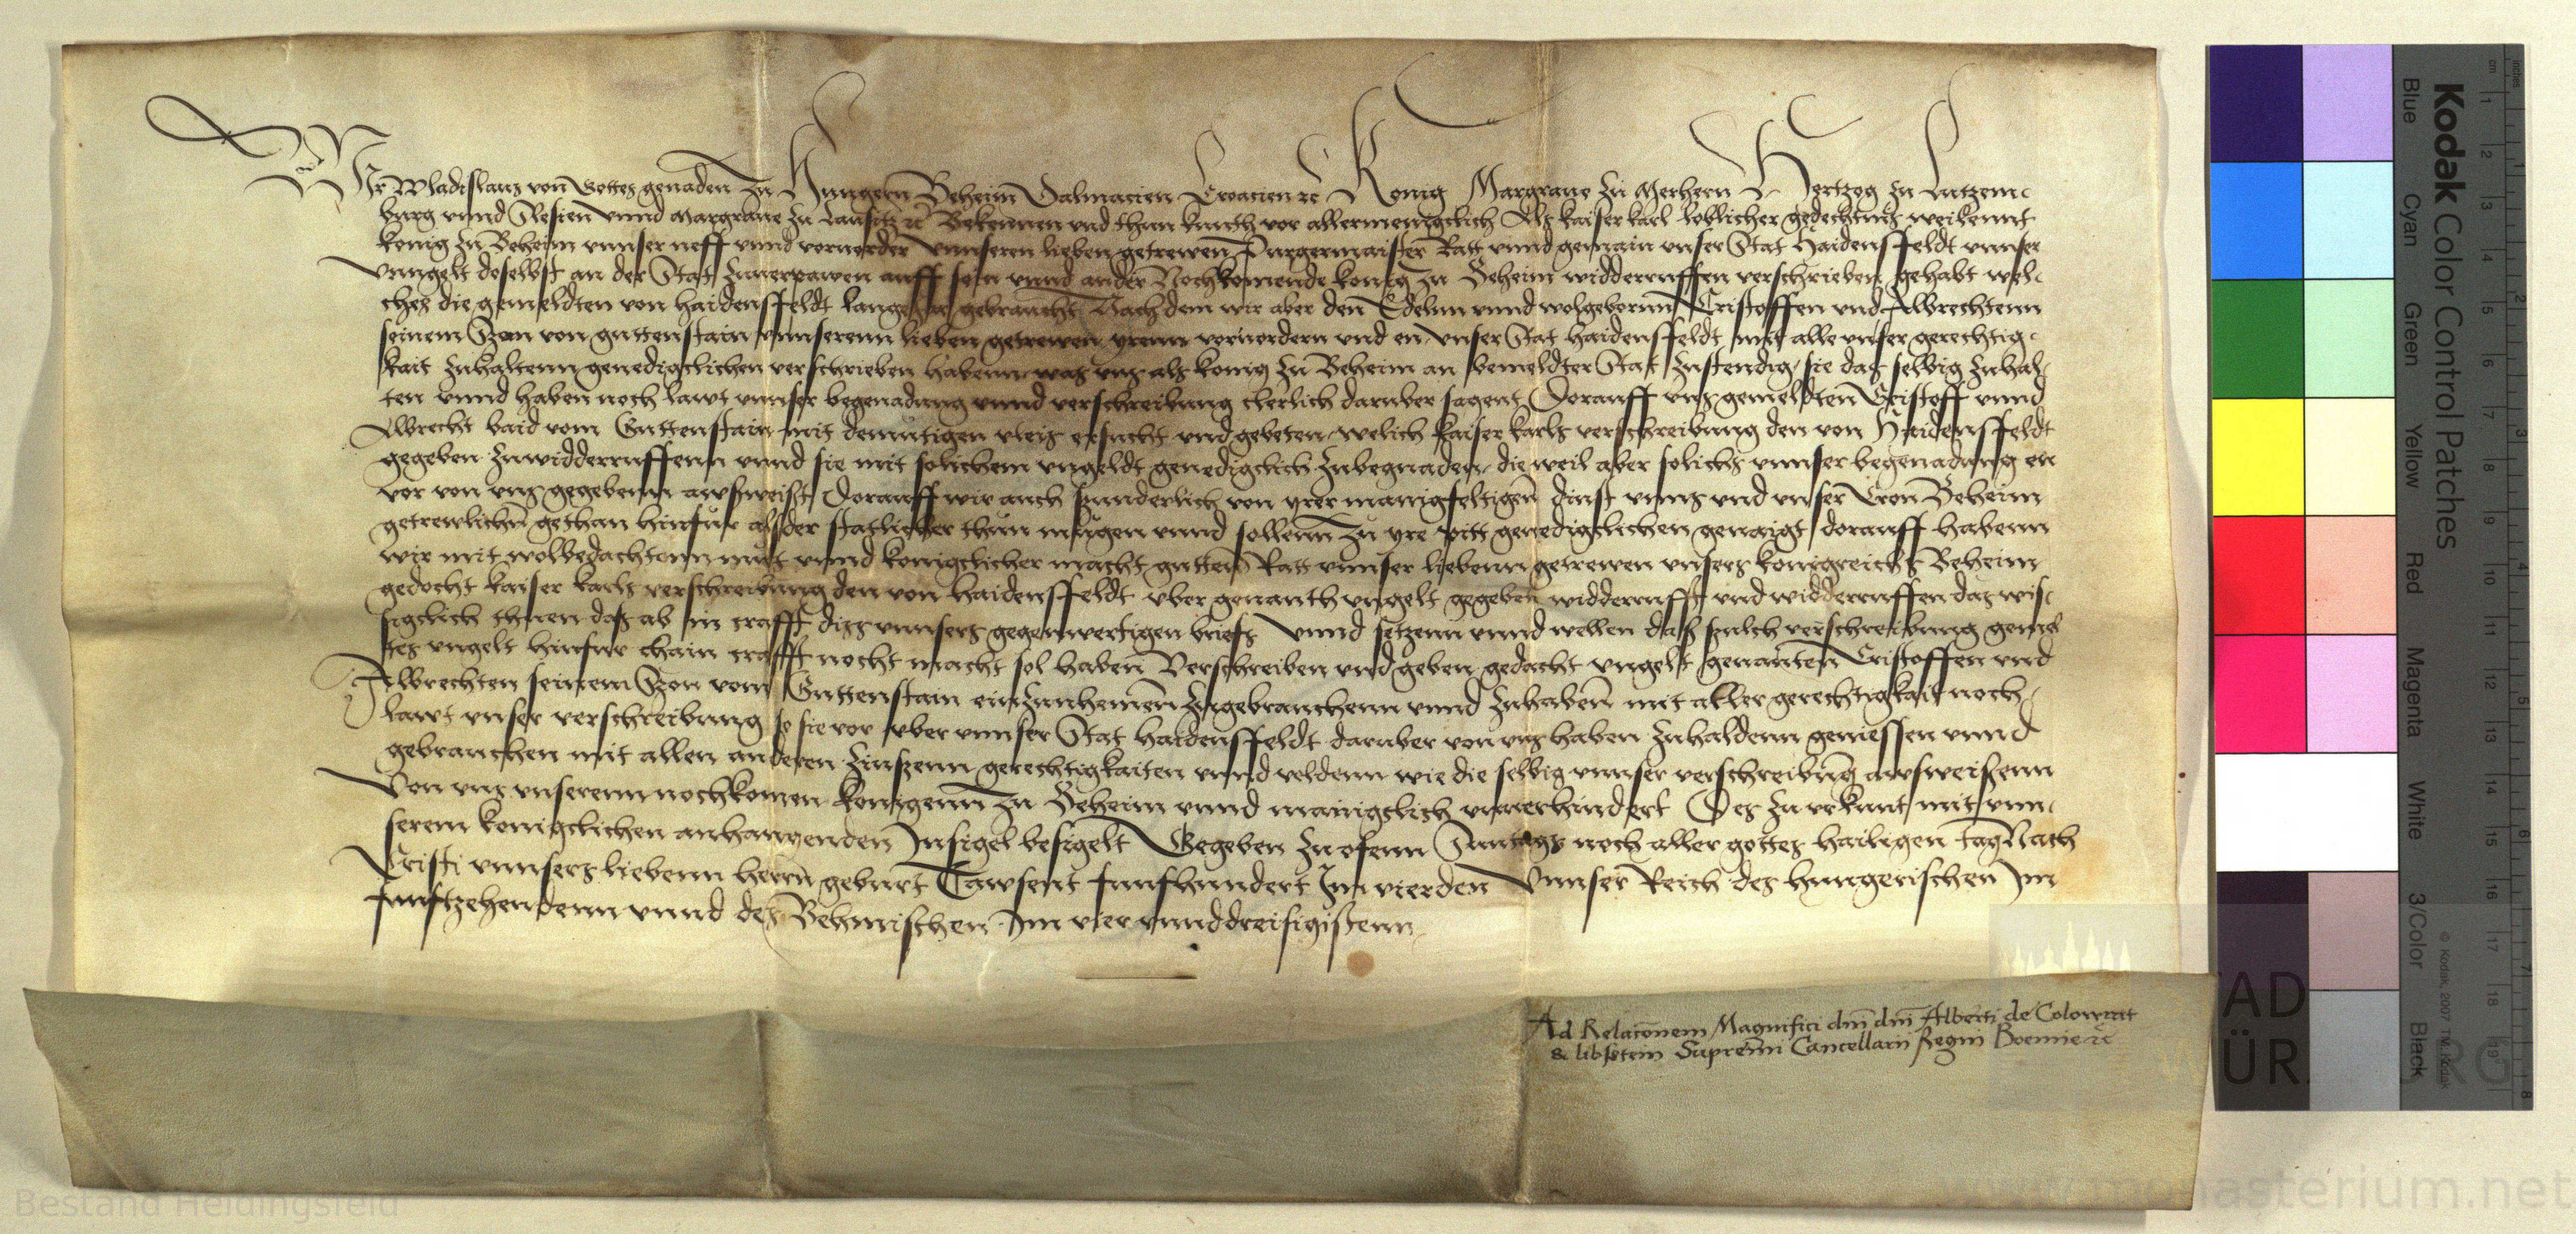 Wir Wladislaus von Gottes genaden zu Hungern Beheim Dalmacien Croacien etc Konig Margraue zu Merhern Hertzog zu Lutzem-
burg vnnd Slesien vnnd Margraue zu Lausitz etc Bekennen vnd thun kunth vor allermenigclich Als kaiser karl loblicher gedechtnus weilennt
konig zu Beheim vnnser neff vnnd voruorder vnnseren lieben getrewen Burgermaister Ratt vnnd gemain vnser Stat Haidensffeldt vnnser
vnngelt doselbst an der Stat zuuerpawen auff sein vnnd ander Nochkomende konig zu Beheim widderruffen verschrieben gehabt wel-
ches die gemeldten von haidensffeldt lange gebraucht Nach dem wir aber den Edelnn vnnd wolgebornn Cristoffen vnd Albrechtenn
seinem Szon von guttenstain vnnserenn lieben getrewen yrenn voruordern vnd en vnser Stat haidensffeldt mit alle vnser gerechtig-
kait zuhaltenn genedigclichen verschrieben habenn was vns als konig zu Beheim an bemeldter Stat zustendig sie das selbig zuhal-
ten vnnd haben noch lawt vnnser begenadung vnnd verschreibung clerlich daruber sagent Dorauff vns gemeldten Cristoff vnnd
Albrecht baid vom Guttenstain mit demutigen vleis ersucht vnd gebeten welich kaiser karls verschreibung den von Haidensffeldt
gegeben zuwidderruffenn vnnd sie mit solichem vngeldt genedigclich zubegnaden die weil aber solichs vnnser begenadung en
vor von vns gegebenn awsweist Dorauff wir auch sunderlich von yrer manigfeltigen dinst vnns vnd vnser Cron Beheim
getrewlichen gethan hinfur als der statlicher thun mugen vnnd sollenn zu yre bitt genedigclichen genaigt dorauff habenn
wir mit wolbedachtenn mut vnnd konigclicher macht gutten Ratt vnnser liebenn getrewen vnsers konigreichs Beheim
gedocht kaiser karls verschreibung den von haidensffeldt vber genanth vngelt gegeben widderrufft vnd widderruffen das wis-
sigclich thuen das ab in crafft diss vnnsers gegenwertigen briefs vnnd setzenn vnnd wellen das sulch verschreibung gemel
tes vngelt hinfur chain crafft nocht macht sol haben Verschreiben vnd geben gedacht vngelt genanten Cristoffen vnd
Albrechten seinem Szon vom Guttenstain einzunhemen zugebrauchenn vnnd zuhaben mit aller gerechtigkait noch
lawt vnser verschreibung so sie vor vber vnnser Stat haidensffeldt daruber von vns haben zuhaldenn geniessen vnnd
gebrauchen mit allen anderen zinszenn gerechtigkaiten vnnd veldenn wie die selbig vnnser verschreibung awsweisenn
Von vns vnserenn nochkomen konigenn zu Beheim vnnd mainigclich vnuerhindert Des zu vrkunt mit vnn-
serem konigclichen anhangenden Insigel besigelt Gegeben zu ofenn Suntags noch aller gottes hailigen tag Nach
Cristi vnnsers liebenn herrn geburt Tawsent funfhundert Im vierden Vnnser Reich des hungerischen Im
funfftzehendenn vnnd des Behmischen Im vier vnnddreisigistenn
Ad Relacionem Magnifici dni dni Alberti de Colowrat
& libstein Supremi Cancellarii Regni Boemie etc
Kodak Color Control Patches
Blue Cyan Green Yellow Red Magenta White 3/Color Black
© Kodak, 2007 TM: Kodak
Bestand Heidingsfeld
www.monasterium.net